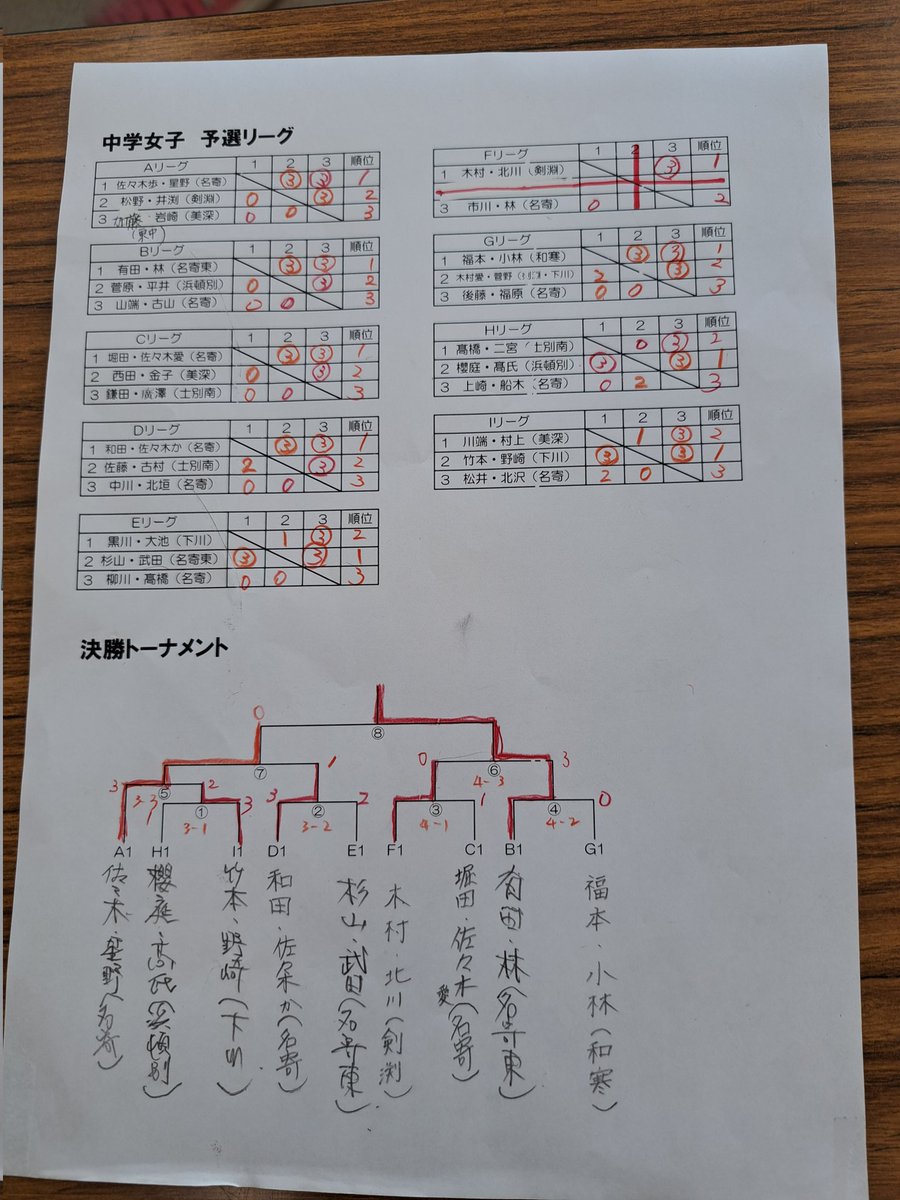 中学女子 予選リーグ
Aリーグ 1 2 3 順位
1 佐々木歩・星野（名寄） ③ ③ 1
2 松野・井渕（剣淵） 0 ③ 2
3 岩崎（美深） 0 0 3
Bリーグ 1 2 3 順位
1 有田・林（名寄東） ③ ③ 1
2 菅原・平井（浜頓別） 0 ③ 2
3 山端・古山（名寄） 0 0 3
Cリーグ 1 2 3 順位
1 堀田・佐々木愛（名寄） ③ ③ 1
2 西田・金子（美深） 0 ③ 2
3 鎌田・廣澤（士別南） 0 0 3
Dリーグ 1 2 3 順位
1 和田・佐々木か（名寄 ③ ③ 1
2 佐藤・古村（士別南） 2 ③ 2
3 中川・北垣（名寄） 0 0 3
Eリーグ 1 2 3 順位
1 黒川・大池（下川） 1 ③ 2
2 杉山・武田（名寄東） ③ ③ 1
3 柳川・髙橋（名寄） 0 0 3
Fリーグ 1 2 3 順位
1 木村・北川（剣淵） ③ 1
3 市川・林（名寄） 0 2
Gリーグ 1 2 3 順位
1 福本・小林（和寒） ③ ③ 1
2 木村愛・菅野（ 下川） 2 ③ 2
3 後藤・福原（名寄） 0 0 3
Hリーグ 1 2 3 順位
1 髙橋・二宮 士別南） 0 ③ 2
2 櫻庭・髙氏（浜頓別） ③ ③ 1
3 上崎・船木（名寄） 0 2 3
Iリーグ 1 2 3 順位
1 川端・村上（美深） 1 ③ 2
2 竹本・野崎（下川） ③ ③ 1
3 松井・北沢（名寄） 2 0 3
決勝トーナメント
0 ⑧
⑦ 1 0 ⑥ 3
4-3
3 ⑤ 2
① 3 3 ② 2 ③ 1 ④ 0
3-1 3-2 4-1 4-2
A1 H1 I1 D1 E1 F1 C1 B1 G1
佐々木・星野（名寄）
櫻庭・髙氏（浜頓別）
竹本・野崎（下川）
和田・佐々木か（名寄）
杉山・武田（名寄東）
木村・北川（剣渕）
堀田・佐々木愛（名寄）
有田・林（名寄東）
福本・小林（和寒）